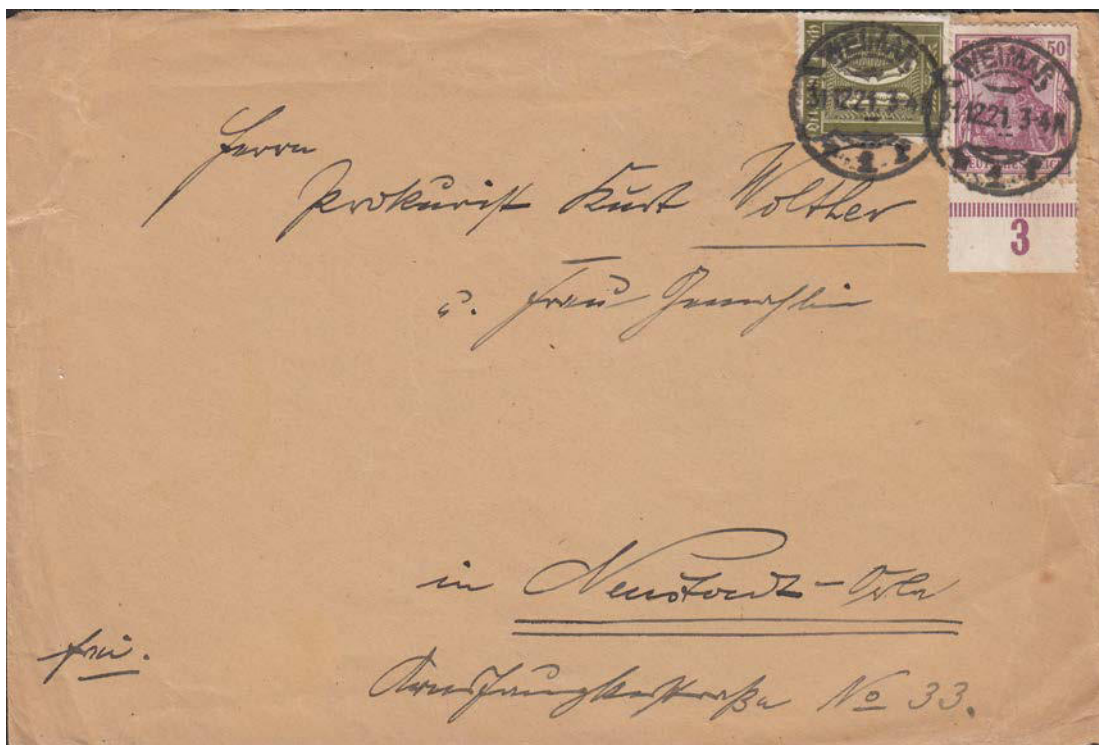 WEIMAR
31.12.21. 3-4N
1
50
WEIMAR
31.12.21. 3-4N
1
3
Herrn
Prokurist Kurt Wolther
u. Frau Gemahlin
in Neustadt-Orla
No 33.
frei.